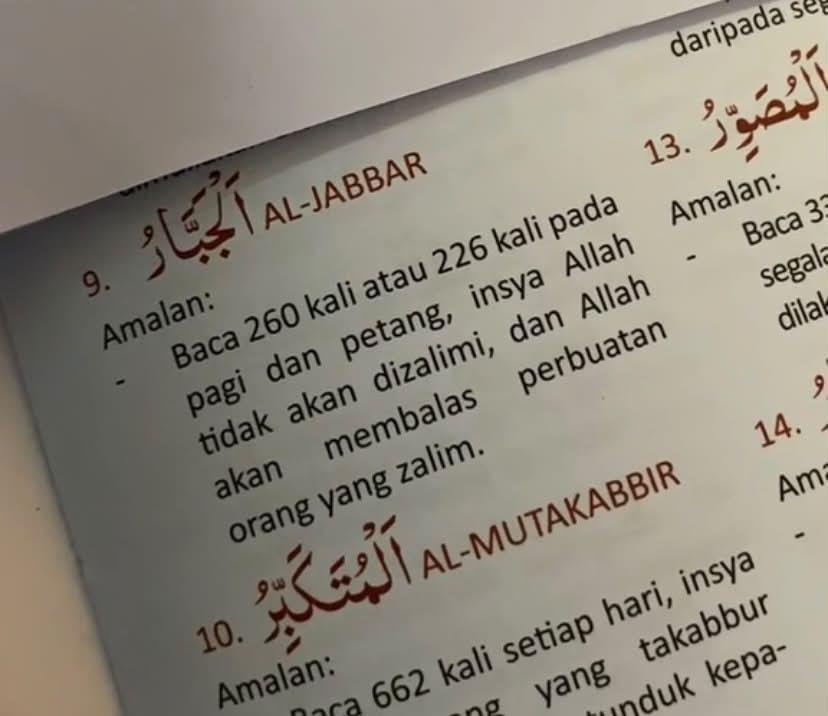 9. اَلْجَبَّارُ AL-JABBAR
Amalan:
- Baca 260 kali atau 226 kali pada
pagi dan petang, insya Allah
tidak akan dizalimi, dan Allah
akan membalas perbuatan
orang yang zalim.
10. اَلْمُتَكَبِّرُ AL-MUTAKABBIR
Amalan:
662 kali setiap hari, insya
yang takabbur
kepa-
daripada
13. اَلْمُصَوِّرُ
Amalan:
- Baca
14.
-